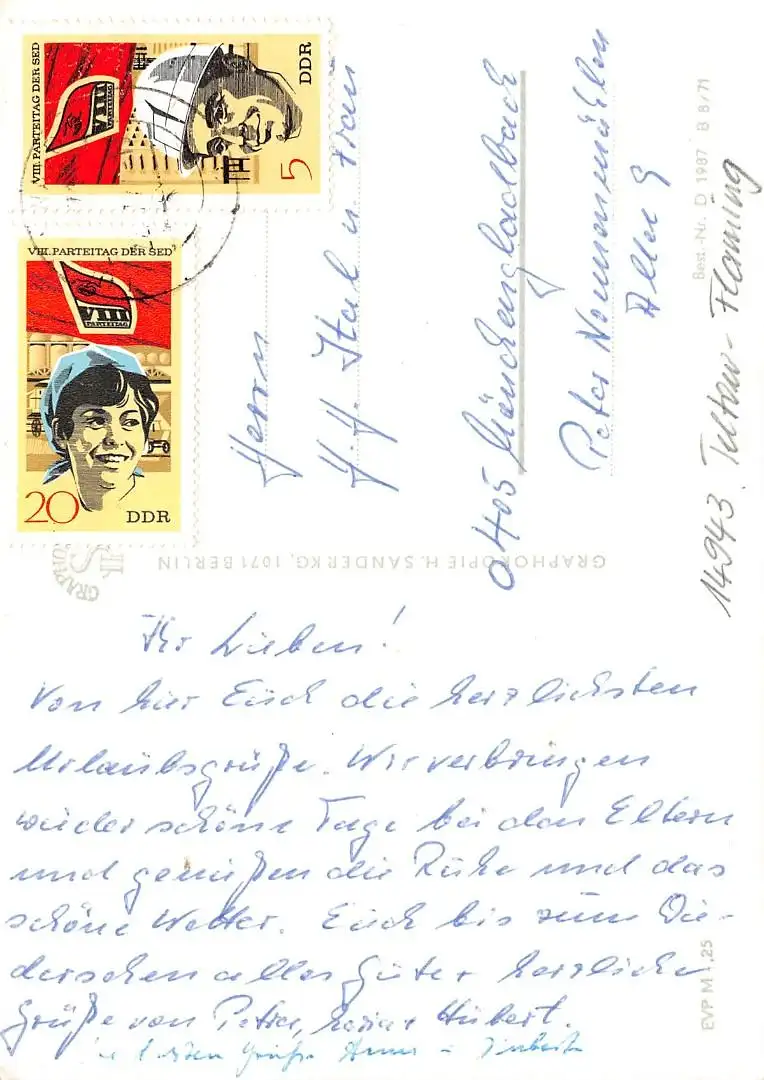 VIII. PARTEITAG DER SED
VIII
PARTEITAG
DDR
5
VIII. PARTEITAG DER SED
VIII
PARTEITAG
20
DDR
Herrn
u. Frau
0405 Mönchengladbach
Peter Nonnenmühlen
Allee 9
Best.-Nr. D 1987 B 8/71
14943. Teltow-Fläming
GRAPHOKOPIE H. SANDER KG, 1071 BERLIN
Ihr Lieben!
Von hier Euch die herzlichsten
Urlaubsgrüße. Wir verbringen
wieder schöne Tage bei den Eltern
und genießen die Ruhe und das
schöne Wetter. Euch bis zum Wie-
dersehen alles Gute herzliche
Grüße von Petra, Hubert.
Grüße
EVP M 1,25